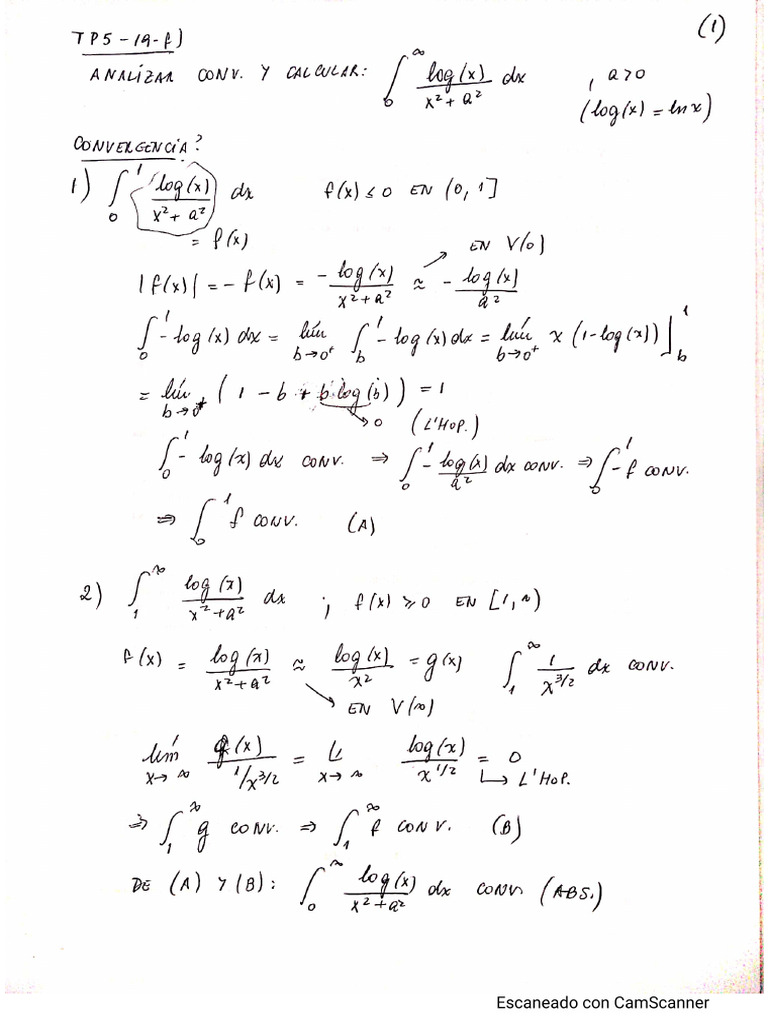 (1)
TP5-19-f)
ANALIZAR CONV. Y CALCULAR: ∫₀^∞ log(x)/(x²+a²) dx , a>0
(log(x) = ln x)
CONVERGENCIA?
1) ∫₀¹ log(x)/(x²+a²) dx f(x) ≤ 0 EN (0,1]
= f(x)
EN V(0)
|f(x)| = -f(x) = -log(x)/(x²+a²) ≈ -log(x)/a²
∫₀¹ -log(x) dx = lím_{b→0⁺} ∫_b¹ -log(x) dx = lím_{b→0⁺} x(1-log(x))]_b¹
= lím_{b→0⁺} (1 - b + b log(b)) = 1
→0 (L'HOP.)
∫₀¹ -log(x) dx CONV. ⇒ ∫₀¹ -log(x)/a² dx CONV. ⇒ ∫₀¹ -f CONV.
⇒ ∫₀¹ f CONV. (A)
2) ∫₁^∞ log(x)/(x²+a²) dx ; f(x) ≥ 0 EN [1,∞)
f(x) = log(x)/(x²+a²) ≈ log(x)/x² = g(x) ∫₁^∞ 1/x^{3/2} dx CONV.
EN V(∞)
lím_{x→∞} g(x)/(1/x^{3/2}) = L_{x→∞} log(x)/x^{1/2} = 0
↳ L'HOP.
⇒ ∫₁^∞ g CONV. ⇒ ∫₁^∞ f CONV. (B)
DE (A) Y (B): ∫₀^∞ log(x)/(x²+a²) dx CONV. (ABS.)
Escaneado con CamScanner